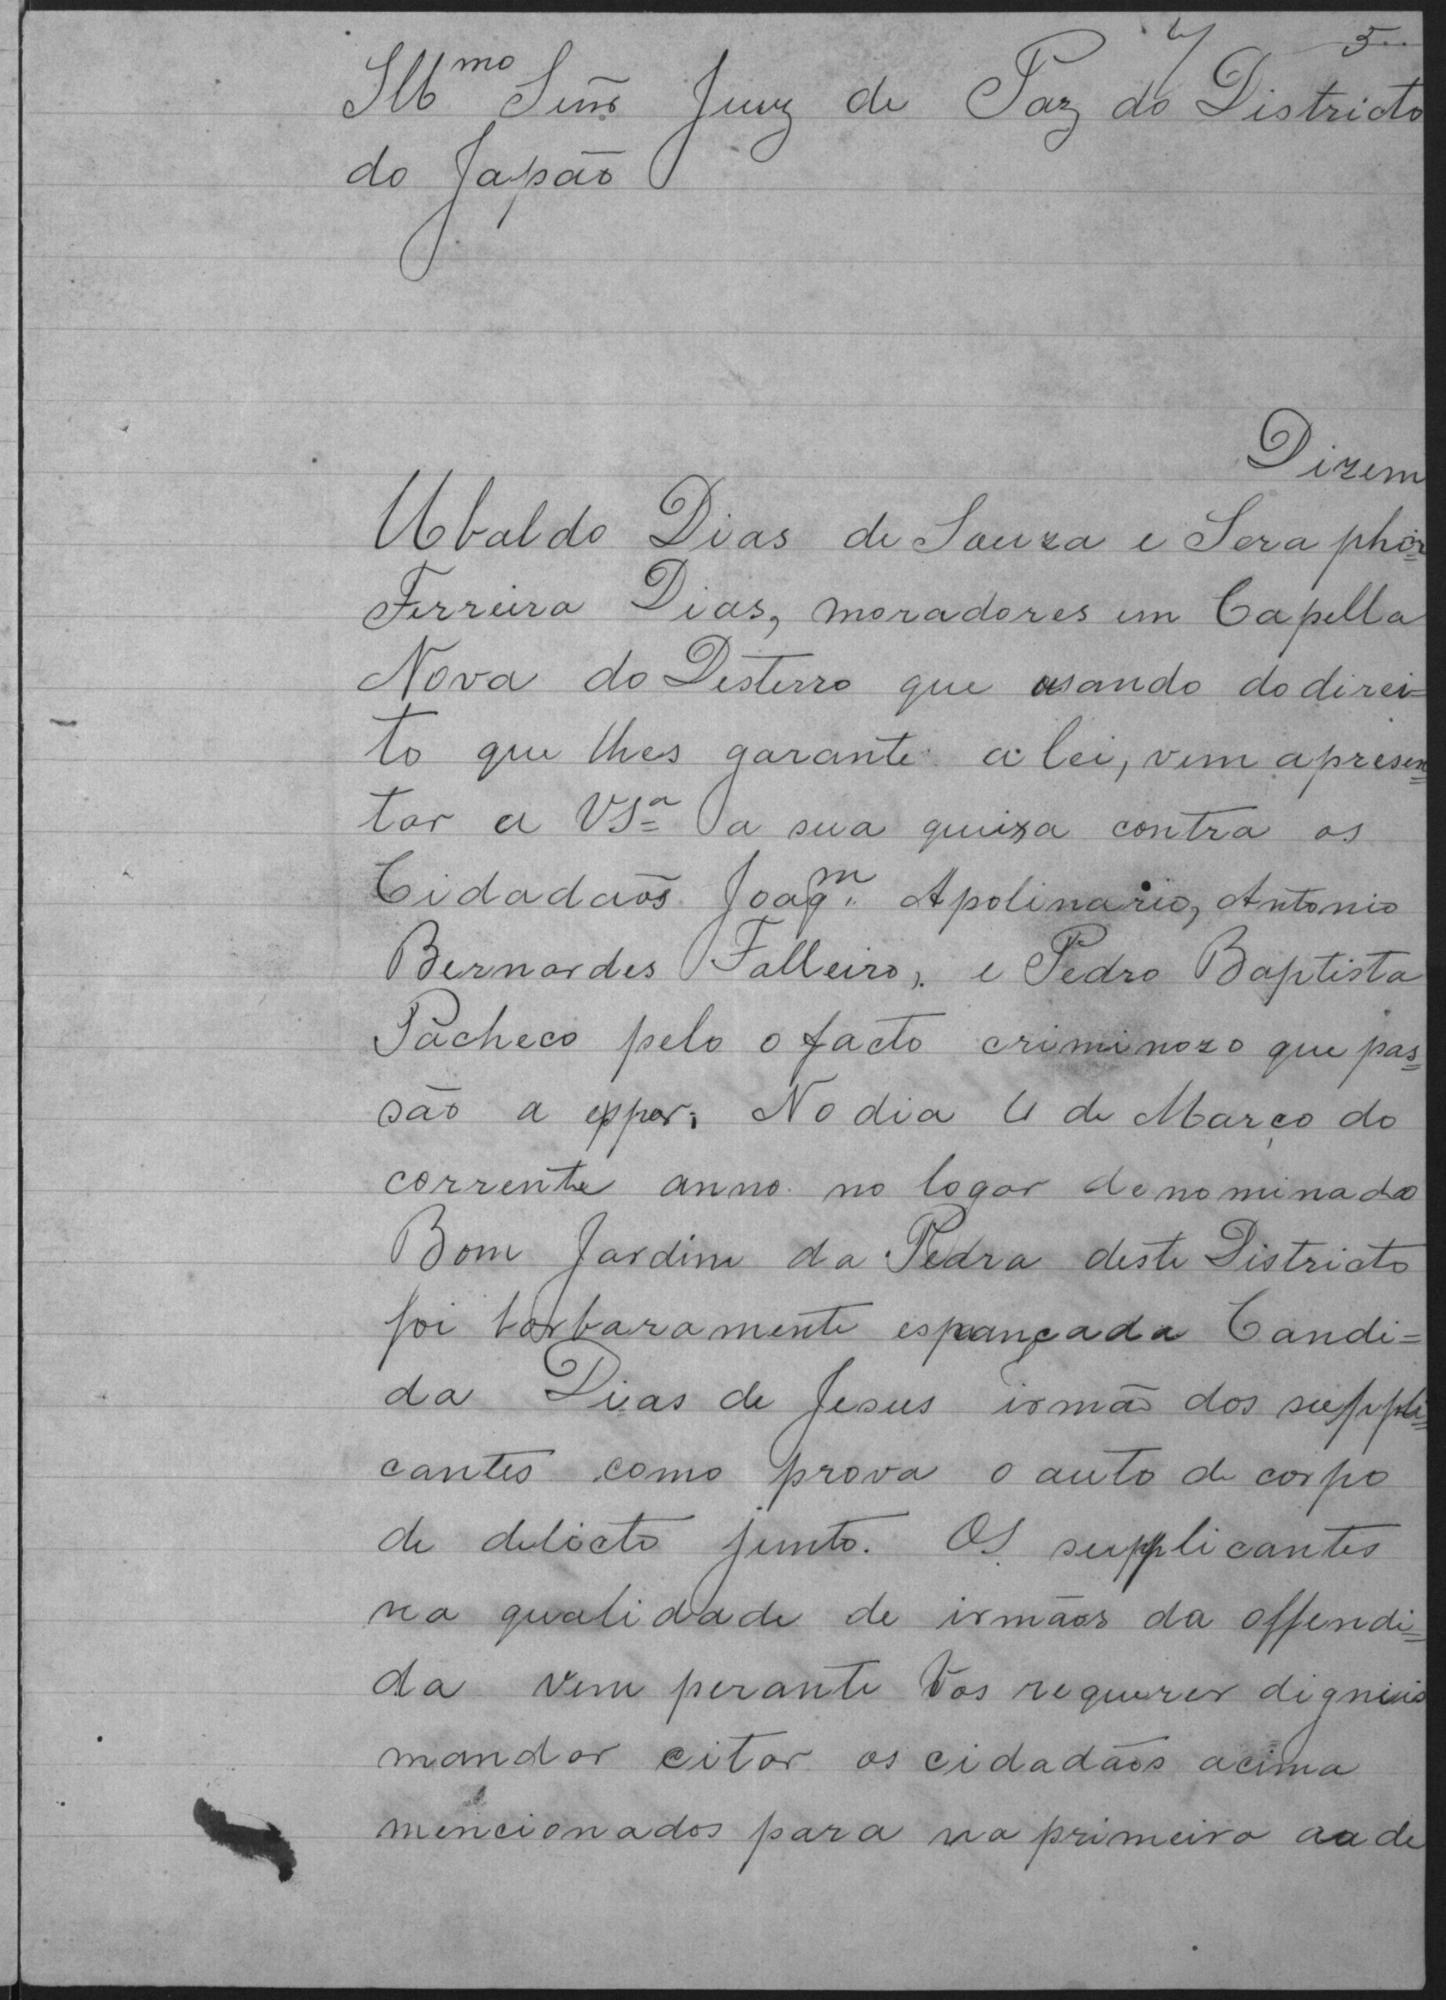 5
Illmo Senr Juiz de Paz do Districto
do Japão
Dizem
Ubaldo Dias de Souza e Seraphi
Ferreira Dias, moradores em Capella
Nova do Desterro que usando do direi=
to que lhes garante a lei, vem apresen=
tar a VSa a sua queixa contra os
Cidadaõs Joaqm Apolinario, Antonio
Bernardes Falleiro, e Pedro Baptista
Pacheco pelo o facto criminozo que pas=
são a expor. No dia 4 de Março do
corrente anno no logar denominado
Bom Jardim da Pedra deste Districto
foi barbaramente espançada Candi=
da Dias de Jesus irmã dos suppli=
cantes como prova o auto de corpo
de delicto junto. Os supplicantes
na qualidade de irmãos da offendi=
da vem perante Vos requerer digneis
mandar citar os cidadãos acima
mencionados para na primeira aude